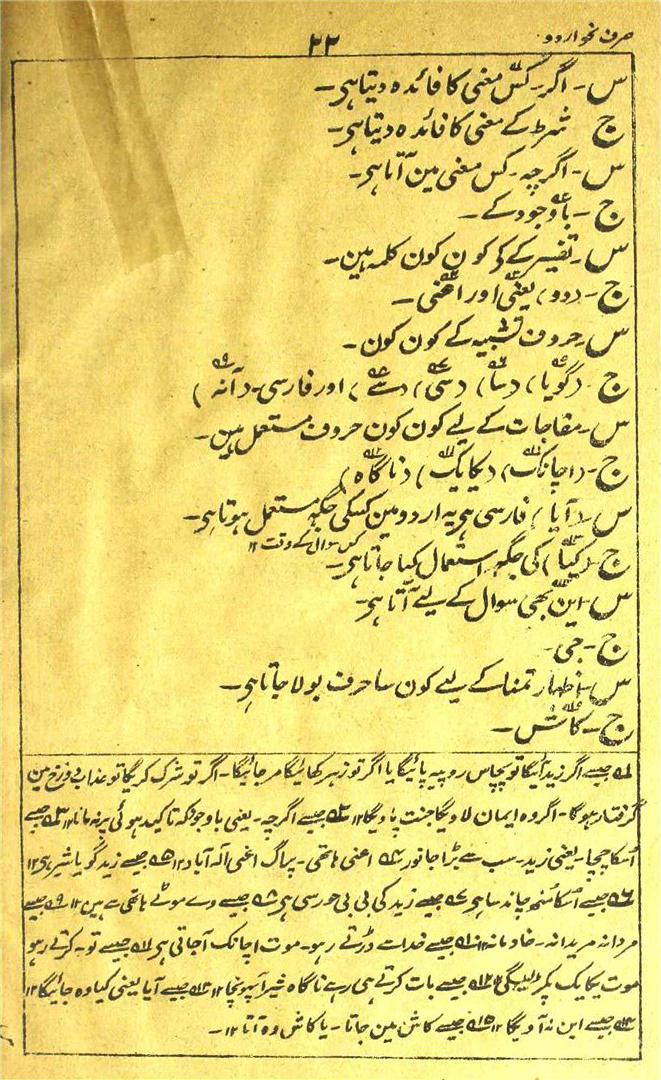 صرف نحو اردو
۲۲
س۔ اگر۔ کس معنی کا فائدہ دیتا ہی۔
ج شرط کے معنی کا فائدہ دیتا ہی۔
س۔ اگرچہ۔ کس معنی مین آتا ہی۔
ج۔ باوجود کے۔
س۔ تفسیر کے کون کون کلمہ ہین۔
ج۔ دو (یعنی اور اعنی۔
س۔ حروف تشبیہ کے کون کون۔
ج (گویا) (سا) (سی) (سے) اور فارسی۔ (آنہ)
س۔ مفاجات کے لیے کون کون حروف مستعمل ہین۔
ج۔ (اچانک) (یکایک) (ناگاہ)
س (آیا) فارسی ہی یہ اردو مین کسکی جگہ مستعمل ہوتا ہی۔
ج۔ (کیا) کی جگہ استعمال کیا جاتا ہی۔
کس سوال کے وقت ۱۲
س۔ این بھی سوال کے لیے آتا ہی۔
ج۔ جی۔
س۔ اظہار تمنا کے لیے کون سا حرف بولا جاتا ہی۔
ج۔ کاش۔
۱؎ جیسے اگر زید آئیگا تو پچاس روپیہ پائیگا یا اگر تو زہر کھائیگا مر جائیگا۔ اگر تو شرک کریگا تو عذاب دوزخ مین
گرفتار ہوگا۔ اگر وہ ایمان لاویگا جنت پاویگا ۱۲ ۲؎ جیسے اگرچہ۔ یعنی باوجودیکہ تاکید ہوئی پر نہ مانا ۱۲ ۳؎ جیسے
اسکا چچا۔ یعنی زید۔ سب سے بڑا جانور ۴؎ اعنی ہاتھی۔ پراگ اعنی الہ آباد ۱۲ ۵؎ جیسے زید گویا شیر ہی ۱۲
۶؎ جیسے اسکا منھ چاند سا ہی ۷؎ جیسے زید کی بی بی حور سی ہی ۸؎ جیسے وے موٹے ہاتھی سے ہین ۱۲ ۹؎ جیسے
مردانہ مریدانہ۔ خادمانہ ۱۲ ۱۰؎ جیسے خدا سے ڈرتے رہو۔ موت اچانک آجاتی ہی ۱۱؎ جیسے تو۔ کرتے رہو
موت یکایک پکڑ لیگی ۱۲؎ جیسے بات کرتے ہی رہے ناگاہ شیر آ پہونچا ۱۲ ۱۳؎ جیسے آیا یعنی کیا وہ جائیگا ۱۲
۱۴؎ جیسے این نہ آویگا ۱۲ ۱۵؎ جیسے کاش مین جاتا۔ یا کاش وہ آتا ۱۲۔